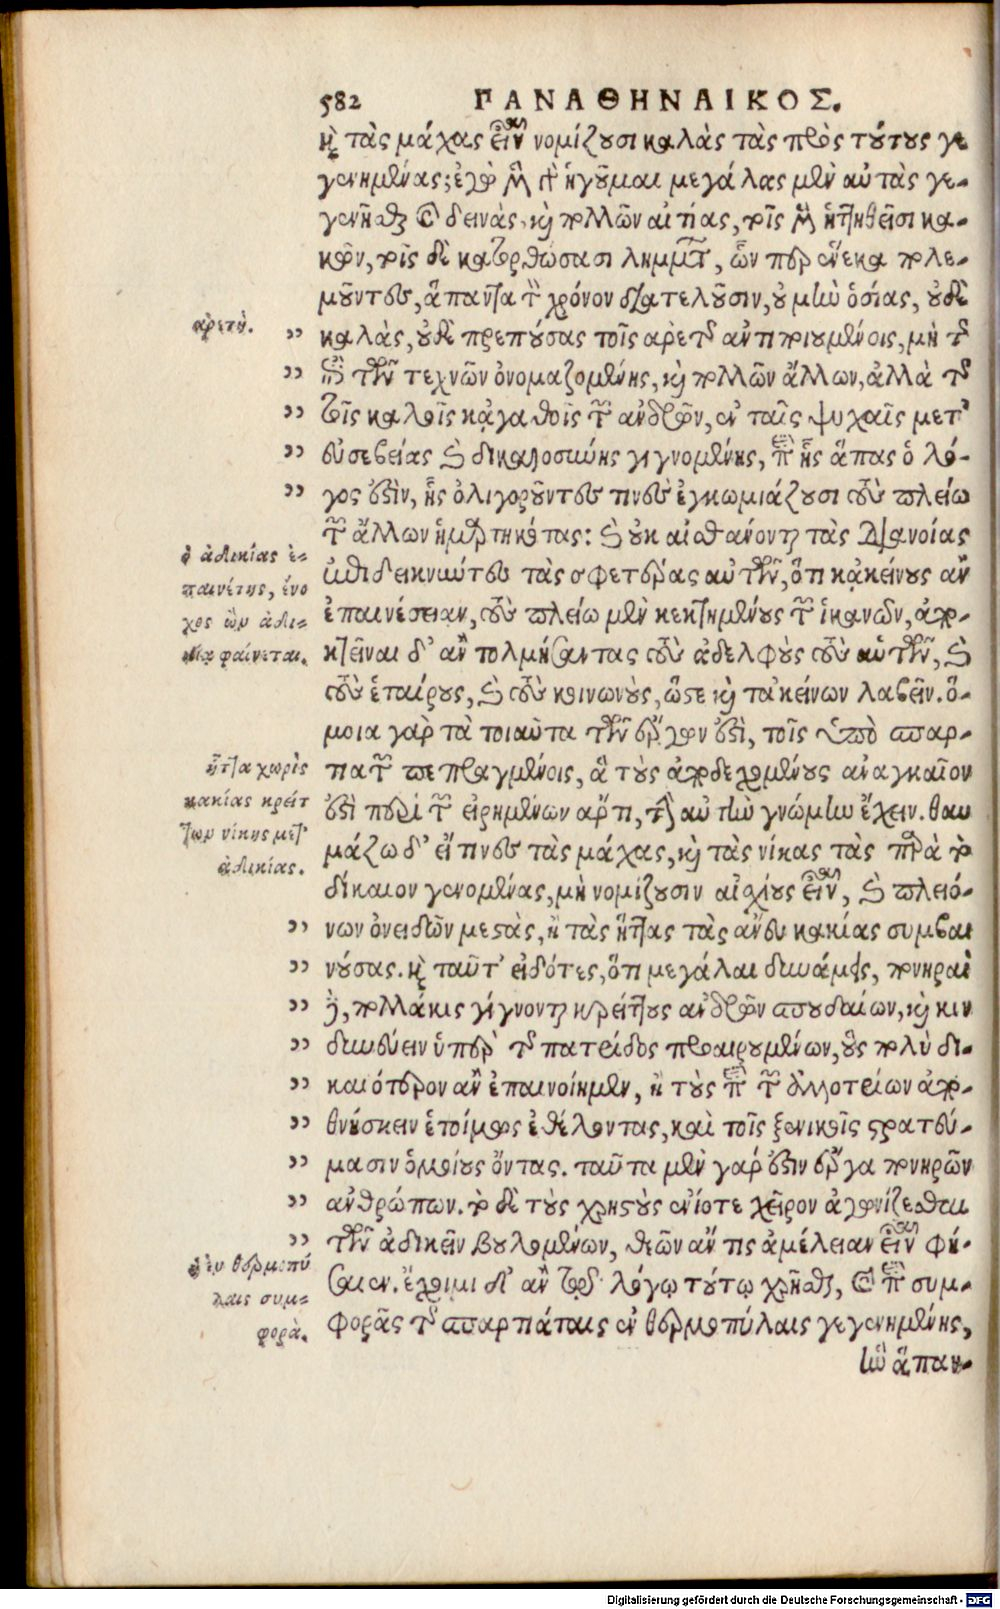 582 ΠΑΝΑΘΗΝΑΙΚΟΣ.
καὶ τὰς μάχας εἶναι νομίζουσι καλὰς τὰς πρὸς τούτους γε
γενημένας; ἐγὼ μὲν γὰρ ἡγοῦμαι μεγάλας μὲν αὐτὰς γε-
γενῆσθαι καὶ δεινὰς, καὶ πολλῶν αἰτίας, τοῖς μὲν ἡττηθεῖσι κα-
κῶν, τοῖς δὲ κατορθώσασι λημμάτων, ὧν περ ἕνεκα πολε-
μοῦντες, ἅπαντα τὸν χρόνον διατελοῦσιν, οὐ μὴν ὁσίας, οὐδὲ
ἀρετή.
” καλὰς, οὐδὲ πρεπούσας τοῖς ἀρετῆς ἀντιποιουμένοις, μὴ τῆς
” ἐπὶ τῶν τεχνῶν ὀνομαζομένης, καὶ πολλῶν ἄλλων, ἀλλὰ τῆς
” τοῖς καλοῖς κἀγαθοῖς τῶν ἀνδρῶν, ἐν ταῖς ψυχαῖς μετ’
” εὐσεβείας καὶ δικαιοσύνης γιγνομένης, περὶ ἧς ἅπας ὁ λό-
” γος ἐστὶν, ἧς ὀλιγοροῦντες τινες ἐγκωμιάζουσι τοὺς πλείω
τῶν ἄλλων ἡμαρτηκότας: καὶ οὐκ αἰσθάνονται τὰς διανοίας
ὁ ἀδικίας ἐ-
παινέτης, ἔνο
χος ὢν ἀδι-
κίᾳ φαίνεται.
ἐπιδεικνύντες τὰς σφετέρας αὐτῶν, ὅτι κἀκείνους ἂν
ἐπαινέσειαν, τοὺς πλείω μὲν κεκτημένους τῶν ἱκανῶν, ἀπο-
κτεῖναι δ’ ἂν τολμήσαντας τοὺς ἀδελφοὺς τοὺς αὑτῶν, καὶ
τοὺς ἑταίρους, καὶ τοὺς κοινωνοὺς, ὥστε καὶ τἀκείνων λαβεῖν. ὅ-
μοια γὰρ τὰ τοιαῦτα τῶν ἔργων ἐστὶ, τοῖς ὑπὸ σπαρ-
ἧττα χωρὶς
κακίας κρείτ
των νίκης μετ’
ἀδικίας.
τιατῶν πεπραγμένοις, ἃ τοὺς ἀποδεχομένους ἀναγκαῖον
ἐστὶ περὶ τῶν εἰρημένων ἄρτι, τὴν αὐτὴν γνώμην ἔχειν. θαυ
μάζω δ’ εἴ τινες τὰς μάχας, καὶ τὰς νίκας τὰς παρὰ τὸ
δίκαιον γενομένας, μὴ νομίζουσιν αἰσχίους εἶναι, καὶ πλειό-
” νων ὀνειδῶν μεστὰς, ἢ τὰς ἥττας τὰς ἄνευ κακίας συμβαι
” νούσας. καὶ ταῦτ’ εἰδότες, ὅτι μεγάλαι δυνάμεις, πονηραὶ
” δὲ, πολλάκις γίγνονται κρείττους ἀνδρῶν σπουδαίων, καὶ κιν
” δυνεύειν ὑπὲρ τῆς πατρίδος προαιρουμένων, οὓς πολὺ δι-
” καιότερον ἂν ἐπαινοίημεν, ἢ τοὺς περὶ τῶν ἀλλοτρίων ἀπο-
” θνήσκειν ἑτοίμως ἐθέλοντας, καὶ τοῖς ξενικοῖς στρατεύ-
” μασιν ὁμοίους ὄντας. ταῦτα μὲν γάρ ἐστιν ἔργα πονηρῶν
” ἀνθρώπων. τὸ δὲ τοὺς χρηστοὺς ἐνίοτε χεῖρον ἀγωνίζεσθαι
” τῶν ἀδικεῖν βουλομένων, θεῶν ἄν τις ἀμέλειαν εἶναι φή-
ἡ ἐν θερμοπύ
λαις συμ-
φορὰ.
σαιεν. ἔχοιμι δ’ ἂν τῷ λόγῳ τούτῳ χρῆσθαι, καὶ περὶ συμ-
φορᾶς τῆς σπαρτιάταις ἐν θερμοπύλαις γεγενημένης,
ἣν ἅπαν-
Digitalisierung gefördert durch die Deutsche Forschungsgemeinschaft - DFG